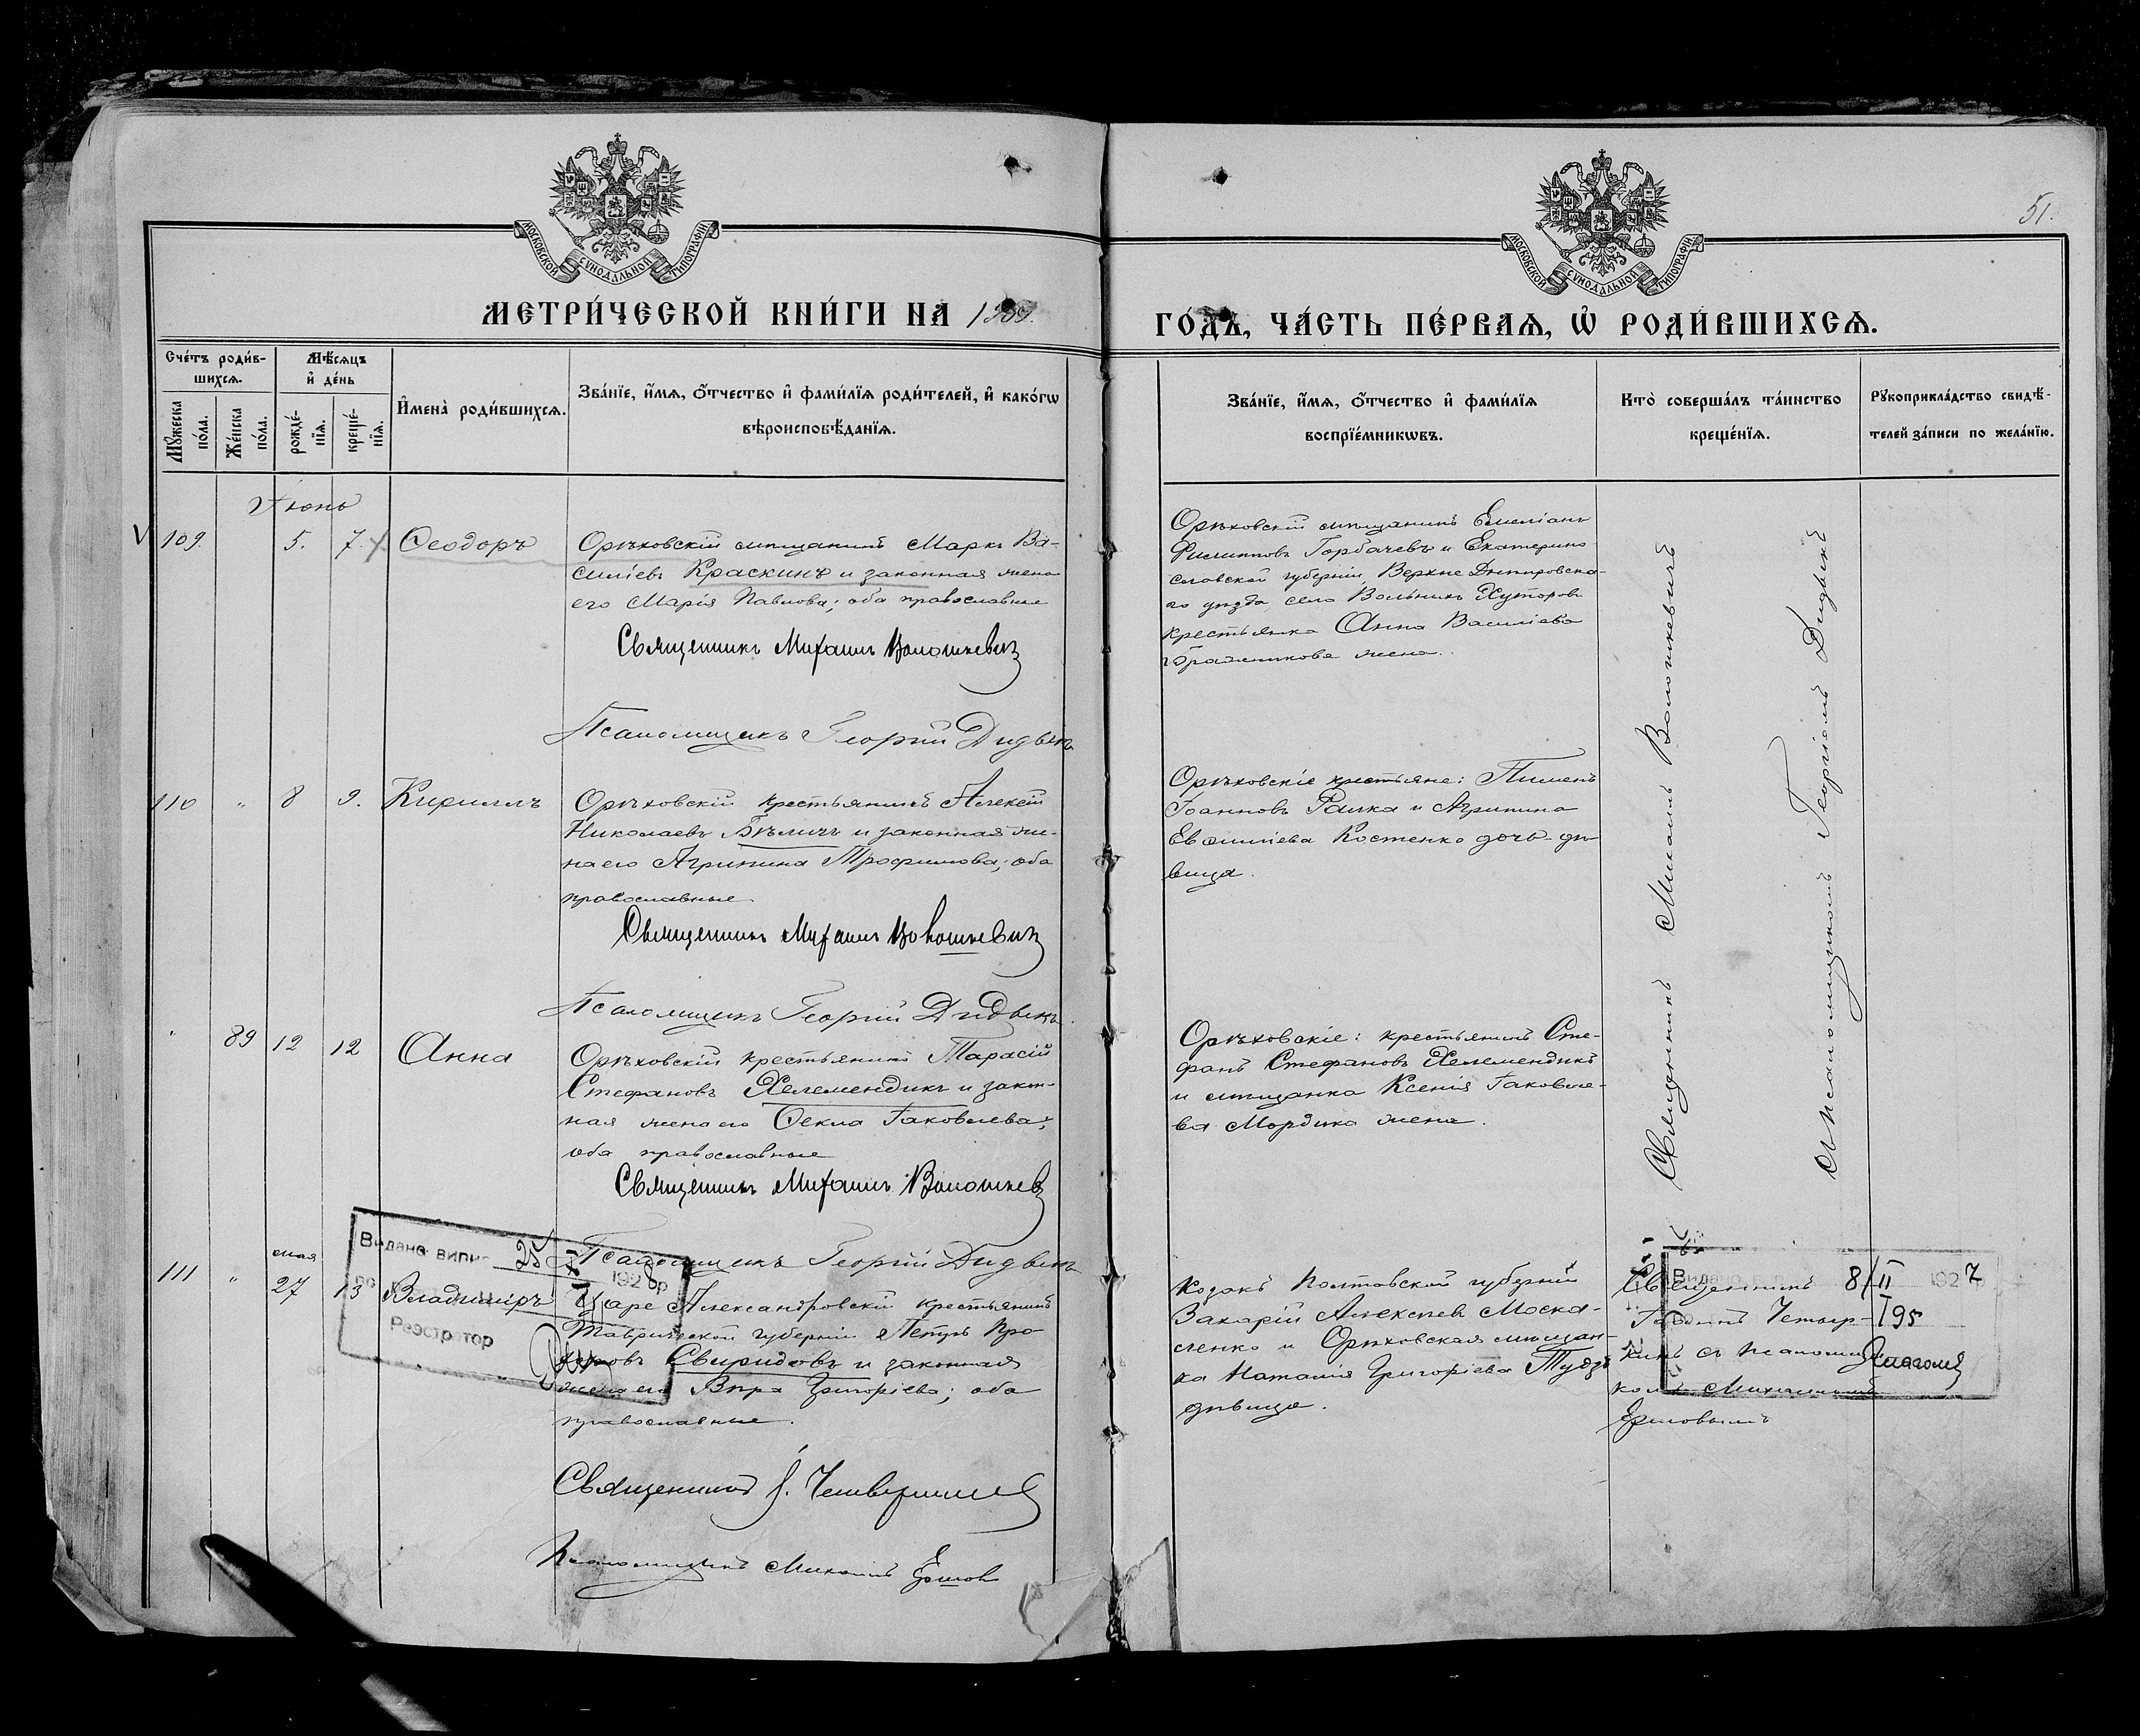 МОСКОВСКОЙ СѴНОДАЛЬНОЙ ТИПОГРАФІИ
МОСКОВСКОЙ СѴНОДАЛЬНОЙ ТИПОГРАФІИ
51.
МЕТРИ́ЧЕСКОЙ КНИ́ГИ НА 1909.
ГО́ДЪ, ЧА́СТЬ ПЕ́РВАЯ, Ѡ҆ РОДИ́ВШИХСЯ.
Сче́тъ роди́в-
шихся.
Мꙋ́жеска
по́ла.
Же́нска
по́ла.
Мѣ́сяцъ
и҆ де́нь
рожде́-
нїя.
креще́-
нїя.
И҆мена̀ роди́вшихся.
Зва́нїе, и҆́мя, ѻ҆́тчество и҆ фами́лїя роди́телей, и҆ како́гѡ
вѣроисповѣ́данїя.
Зва́нїе, и҆́мя, ѻ҆́тчество и҆ фами́лїя
воспрїе́мникѡвъ.
Кто̀ соверша́лъ та́инство
креще́нїя.
Рꙋкоприкла́дство свидѣ́-
телей за́писи по жела́нїю.
Іюнь
109. 5. 7. Ѳеодоръ
Орѣховскій мѣщанинъ Маркъ Ва-
силіевъ Краскинъ и законная жена
его Марія Павлова; оба православные
Священникъ Михаилъ Волошкевичъ
Псаломщикъ Георгій Дидыкъ
Орѣховскій мѣщанинъ Емеліанъ
Филипповъ Горбачевъ и Екатерино-
славской губерніи, Верхне Днѣпровска-
го уѣзда, села Вольныхъ Хуторовъ
крестьянка Анна Василіева
жена.
110 " 8 9. Кириллъ
Орѣховскій крестьянинъ Алексій
Николаевъ Бѣличъ и законная же-
на его Агрипина Трофимова; оба
православные
Священникъ Михаилъ Волошкевичъ
Псаломщикъ Георгій Дидыкъ
Орѣховскіе крестьяне: Пименъ
Іоанновъ и Агрипина
Костенко дочь дѣ-
вица.
" 89 12 12 Анна
Орѣховскій крестьянинъ Тарасій
Стефановъ Хелемендикъ и закон-
ная жена его Ѳекла Іаковлева;
оба православные
Священникъ Михаилъ Волошкев
Псаломщикъ Георгій Дидыкъ
Орѣховскіе: крестьянинъ Сте-
фанъ Стефановъ Хелемендикъ
и мѣщанка Ксенія Іаковле-
ва Мордика жена.
Священникъ Михаилъ Волошкевичъ
съ псаломщикомъ Георгіемъ Дидыкъ
111 " мая 27 13 Владиміръ
Царе Александровскій крестьянинъ
Таврической губерніи Петръ Про-
Свиридовъ и законная
жена его Вѣра Григоріева; оба
православные.
Священникъ І.
Псаломщикъ Михаилъ Ершов
Козакъ Полтавской губерніи
Захарій Алексѣев Моска-
ленко и Орѣховская мѣщан-
ка Наталія Григоріева
дѣвица.
Священникъ
съ псаломщи-
комъ Михаиломъ
Ершовымъ
Видано випис 25 1928 р
Реэстратор
Видано 8/II 1927
195